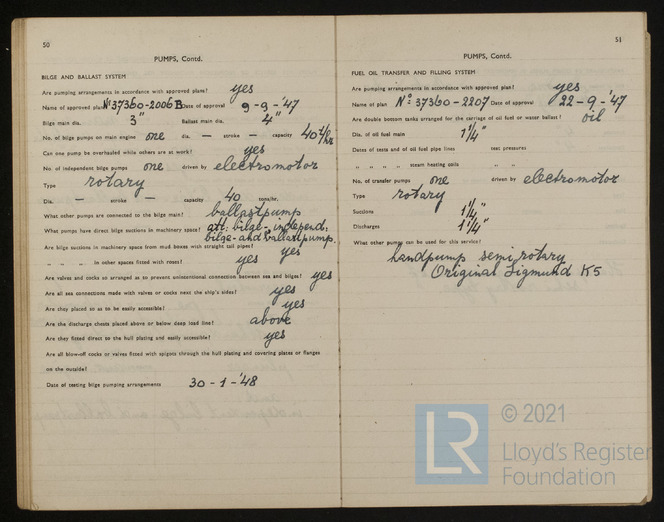 50
PUMPS, Contd.
BILGE AND BALLAST SYSTEM
Are pumping arrangements in accordance with approved plans? yes
Name of approved plans No 37360-2006 B Date of approval 9-9-'47
Bilge main dia. 3" Ballast main dia. 4"
No. of bilge pumps on main engine one dia. — stroke — capacity 40 t/hr
Can one pump be overhauled while others are at work? yes
No. of independent bilge pumps one driven by electromotor
Type rotary
Dia. — stroke — capacity 40 tons/hr.
What other pumps are connected to the bilge main? ballastpump
What pumps have direct bilge suctions in machinery space? att: bilge-, independ:
bilge- and ballastpump.
Are bilge suctions in machinery space from mud boxes with straight tail pipes? yes
„ „ „ in other spaces fitted with roses? yes
Are valves and cocks so arranged as to prevent unintentional connection between sea and bilges? yes
Are all sea connections made with valves or cocks next the ship's sides? yes
Are they placed so as to be easily accessible? yes
Are the discharge chests placed above or below deep load line? above
Are they fitted direct to the hull plating and easily accessible? yes
Are all blow-off cocks or valves fitted with spigots through the hull plating and covering plates or flanges
on the outside?
Date of testing bilge pumping arrangements 30-1-'48
51
PUMPS, Contd.
FUEL OIL TRANSFER AND FILLING SYSTEM
Are pumping arrangements in accordance with approved plan? yes
Name of plan No: 37360-2207 Date of approval 22-9-'47
Are double bottom tanks arranged for the carriage of oil fuel or water ballast? oil
Dia. of oil fuel main 1¼"
Dates of tests and of oil fuel pipe lines test pressures
„ „ „ „ steam heating coils „ „
No. of transfer pumps one driven by electromotor
Type rotary
Suctions 1¼"
Discharges 1¼"
What other pumps can be used for this service?
handpump semi rotary
Original Sigmund K5
LR
© 2021
Lloyd's Register
Foundation